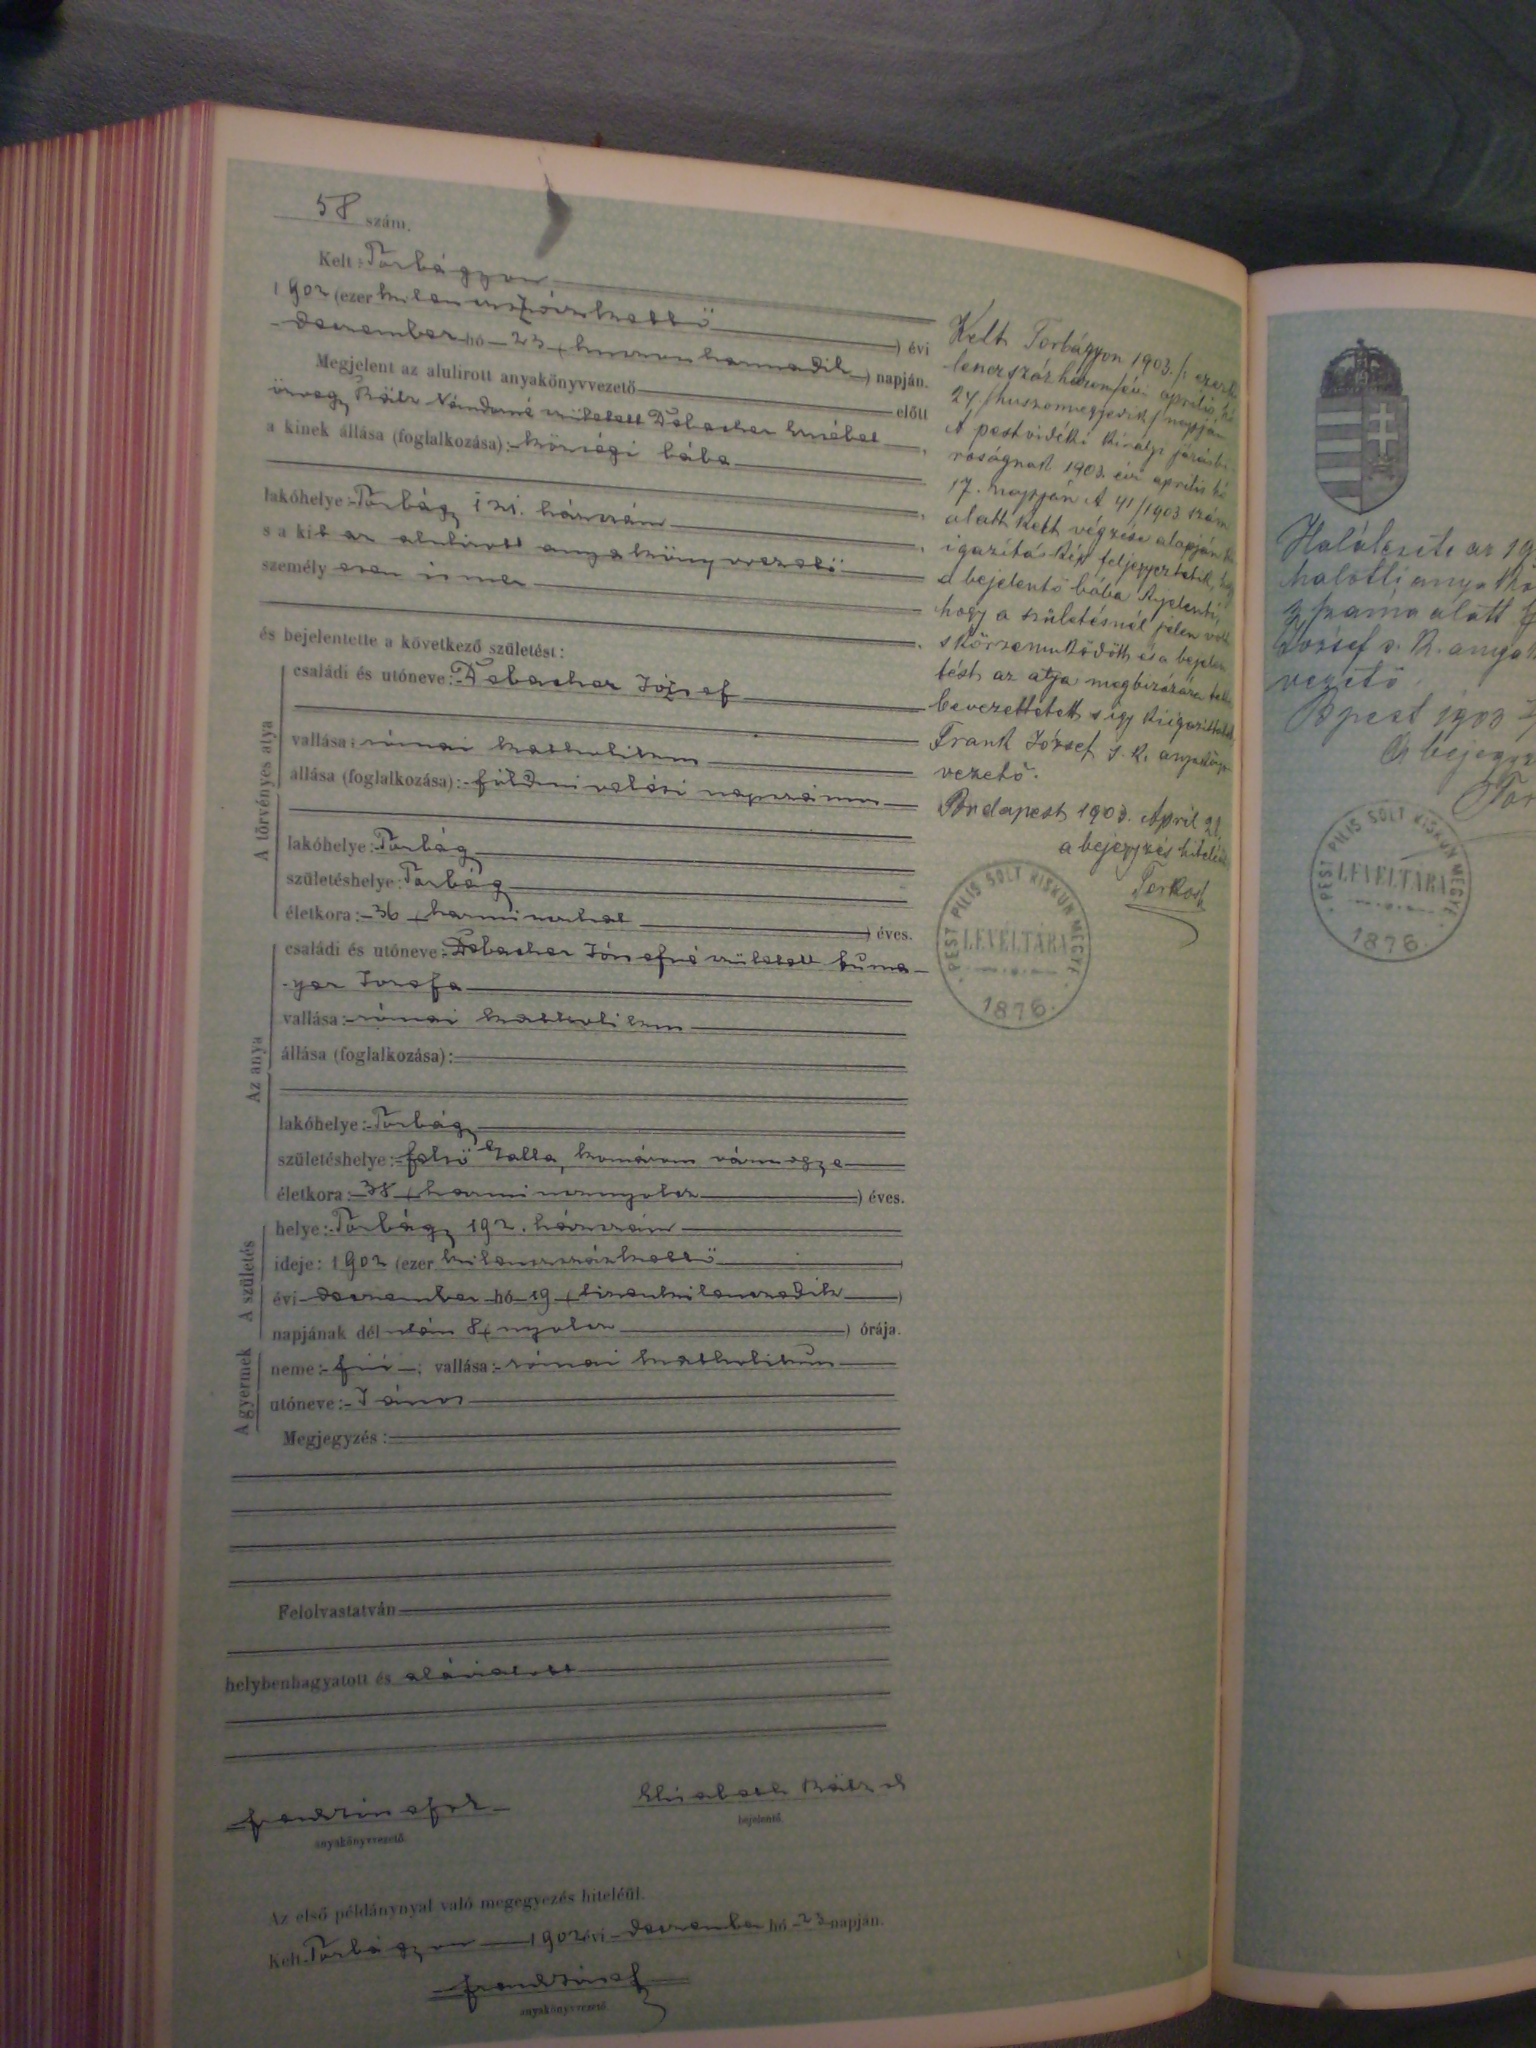 58 szám.
Kelt: Torbágyon
1902 (ezer kilenczszázkettő) évi
deczember hó 23 (huszonharmadik) napján.
Megjelent az alulirott anyakönyvvezető előtt
özvegy Bälz Nándorné született Debacher
a kinek állása (foglalkozása): községi bába
lakóhelye: Torbágy 121. házszám
s a kit az alulirott anyakönyvvezető
személyesen ismer
és bejelentette a következő születést:
A törvényes atya
családi és utóneve: Debacher József
vallása: római katholikus
állása (foglalkozása): földmivelési napszámos
lakóhelye: Torbágy
születéshelye: Torbágy
életkora: 36 (harminczhat) éves.
Az anya
családi és utóneve: Debacher Józsefné született
Jozefa
vallása: római katholikus
állása (foglalkozása):
lakóhelye: Torbágy
születéshelye: felső Galla, komárom vármegye
életkora: 38 (harmincznyolcz) éves.
A születés
helye: Torbágy 192. házszám
ideje: 1902 (ezer kilenczszázkettő)
évi deczember hó 19 (tizenkilenczedik)
napjának dél után 8 (nyolcz) órája.
A gyermek
neme: fiú; vallása: római katholikus
utóneve: János
Megjegyzés:
Felolvastatván
helybenhagyatott és aláiratott
anyakönyvvezető.
bejelentő.
Az első példánynyal való megegyezés hiteléül.
Kelt Torbágyon 1902 évi deczember hó 23 napján.
anyakönyvvezető
Kelt Torbágyon 1903. /: ezerki
lenczszázhárom/ évi április hó
24 /huszonnegyedik/ napján
A pestvidéki királyi járásbi
róságnak 1903. évi április hó
17. napján A 41/1903 szám
alatt kelt végzése alapján
igazításkép feljegyeztetik, hogy
a bejelentő bába kijelenti,
hogy a születésnél jelen volt
s közreműködött és a bejelen
tést az atya megbizására
bevezettetett s így kiigazíttatott
Frank József s. k. anyakönyv
vezető.
Budapest 1903. April 21.
a bejegyzés hiteléül
PEST PILIS SOLT KISKUN MEGYE
LEVÉLTÁRA
1876.
Halálesete az 19
halotti anyakö
szama alatt
József s. k. anyak
vezető.
Bpest 1903
A bejegyz
PEST PILIS SOLT KISKUN MEGYE
LEVÉLTÁRA
1876.